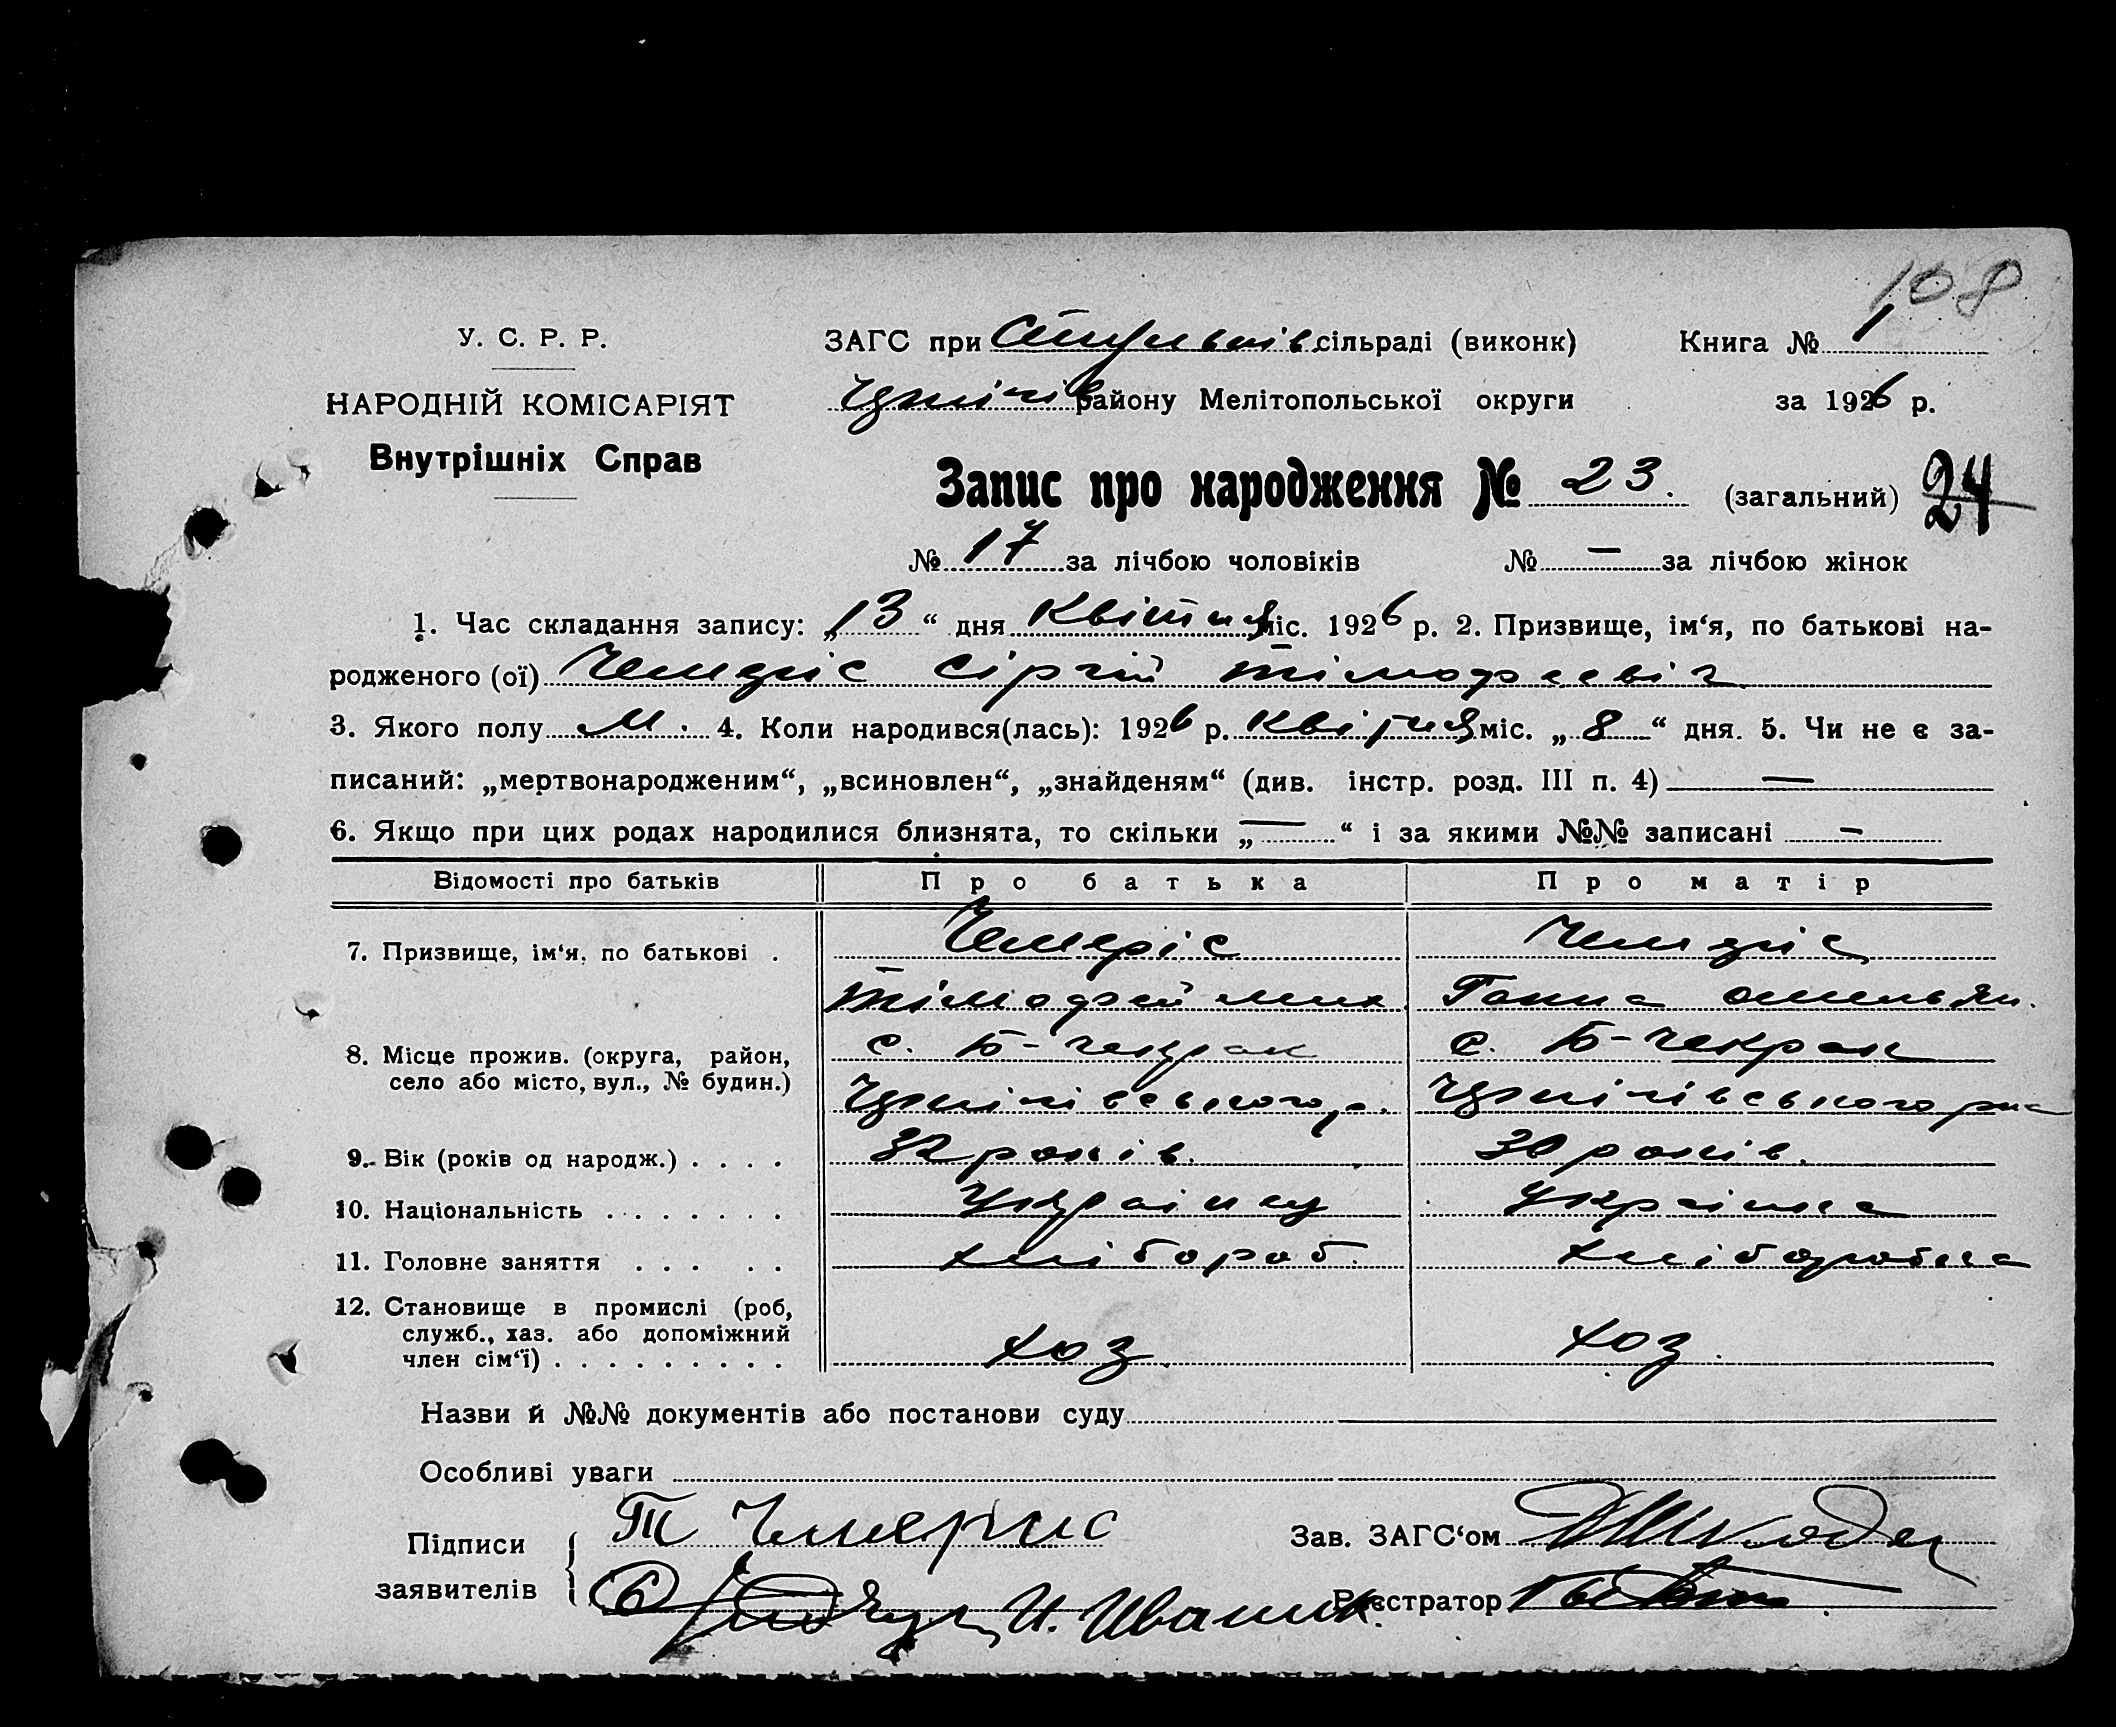 108
У. С. Р. Р.
ЗАГС при сільраді (виконк)
Книга № 1
НАРОДНІЙ КОМІСАРІЯТ
району Мелітопольської округи
за 1926 р.
Внутрішніх Справ
Запис про народження № 23. (загальний) 24
№ 17 за лічбою чоловіків № — за лічбою жінок
1. Час складання запису: „13“ дня Квітня міс. 1926 р. 2. Призвище, ім‘я, по батькові на-
родженого (ої) Чемеріс Сіргій Тімофеевіч
3. Якого полу М. 4. Коли народився(лась): 1926 р. Квітня міс. „8“ дня. 5. Чи не є за-
писаний: „мертвонародженим“, „всиновлен“, „знайденям“ (див. інстр. розд. III п. 4) —
6. Якщо при цих родах народилися близнята, то скільки „—“ і за якими №№ записані —
Відомості про батьків Про батька Про матір
7. Призвище, ім‘я, по батькові . Чемеріс Чемеріс
Тімофей Мих. Ганна Омельян.
8. Місце прожив. (округа, район, с. Б-Чекрак с. Б-Чекрак
село або місто, вул., № будин.) Чернігівського р. Чернігівського
9. Вік (років од народж.) . . . . 32 років. 30 років.
10. Національність . . . . . . . Українец Українка
11. Головне заняття . . . . . хлібороб. хліборобка
12. Становище в промислі (роб,
служб., хаз. або допоміжний
член сім‘ї) . . . . . . . . . хоз. хоз.
Назви й №№ документів або постанови суду
Особливі уваги
Підписи
заявителів
Т Чимерис
И. Ивашик.
Зав. ЗАГС‘ом
Реєстратор